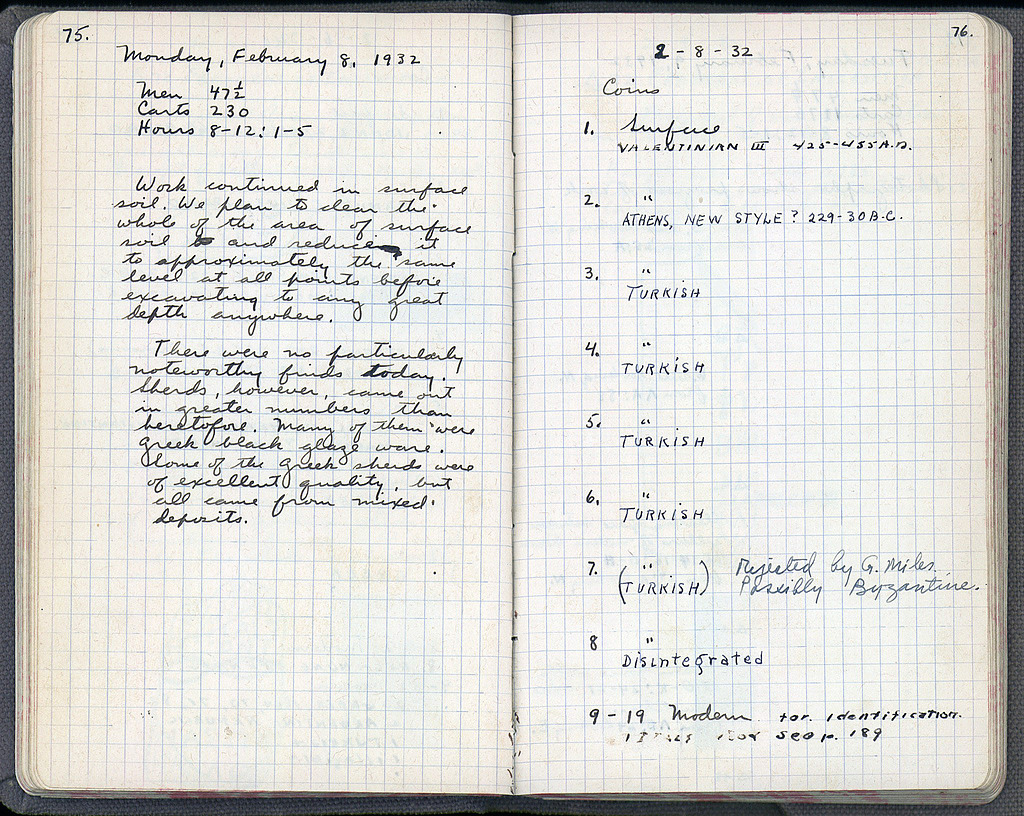 75.
Monday, February 8, 1932
Men 47½
Carts 230
Hours 8-12: 1-5
Work continued in surface
soil. We plan to clear the
whole of the area of surface
soil and reduce it
to approximately the same
level at all points before
excavating to any great
depth anywhere.
There were no particularly
noteworthy finds today.
Sherds, however, came out
in greater numbers than
heretofore. Many of them were
Greek black glaze ware.
Some of the Greek sherds were
of excellent quality, but
all came from mixed
deposits.
76.
2-8-32
Coins
1. Surface
VALENTINIAN III 425-455 A.D.
2. "
ATHENS, NEW STYLE? 229-30 B.C.
3. "
TURKISH
4. "
TURKISH
5. "
TURKISH
6. "
TURKISH
7. "
(TURKISH) Rejected by G. Miles.
Possibly Byzantine.
8 "
Disintegrated
9-19 Modern for identification.
see p. 189